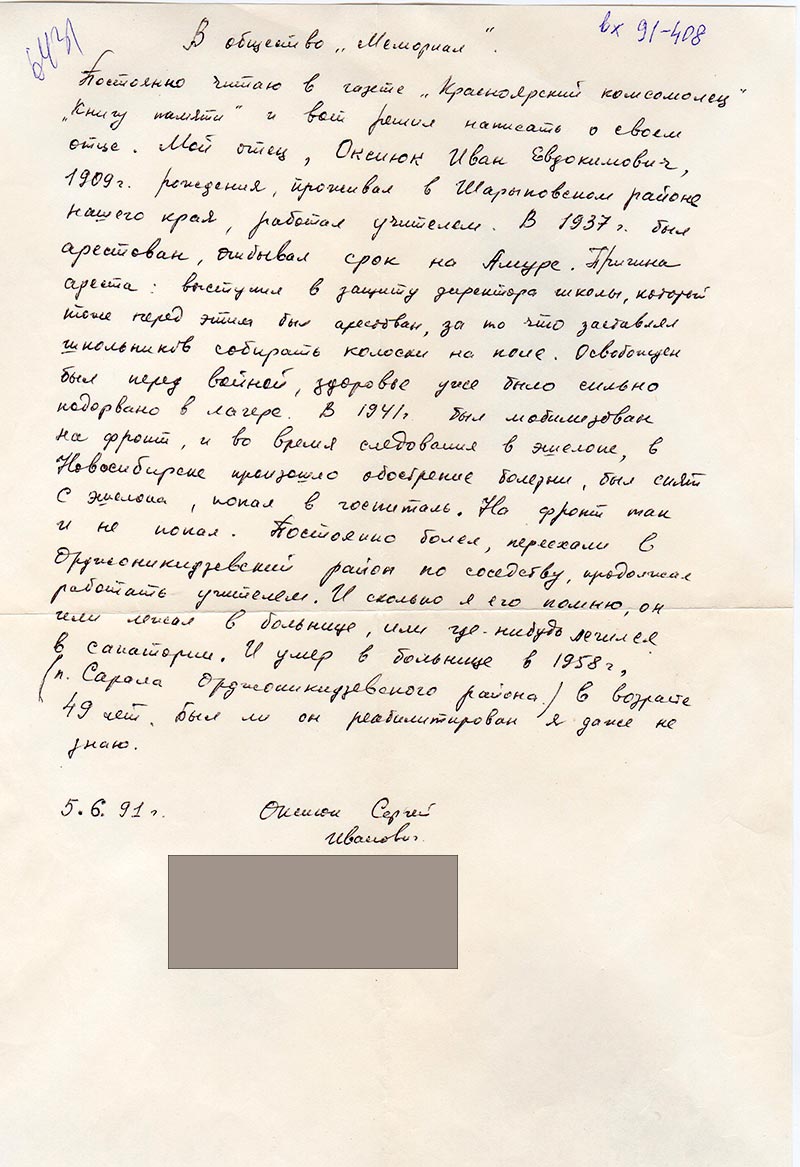 6431
вх 91-408
В общество „Мемориал".
Постоянно читаю в газете „Красноярский комсомолец"
„Книгу памяти" и вот решил написать о своем
отце. Мой отец, Оксиюк Иван Евдокимович,
1909г. рождения, проживал в Шарыповском районе
нашего края, работал учителем. В 1937г. был
арестован, отбывал срок на Амуре. Причина
ареста: выступил в защиту директора школы, который
тоже перед этим был арестован, за то что заставлял
школьников собирать колоски на поле. Освобожден
был перед войной, здоровье уже было сильно
подорвано в лагере. В 1941г. был мобилизован
на фронт, и во время следования в эшелоне, в
Новосибирске произошло обострение болезни, был снят
с эшелона, попал в госпиталь. На фронт так
и не попал. Постоянно болел, переехали в
Орджоникидзевский район по соседству, продолжал
работать учителем. И сколько я его помню, он
или лежал в больнице, или где-нибудь лечился
в санатории. И умер в больнице в 1958г,
(п. Сарала Орджоникидзевского района) в возрасте
49 лет. Был ли он реабилитирован я даже не
знаю.
5.6.91г. Оксиюк Сергей
Иванович.